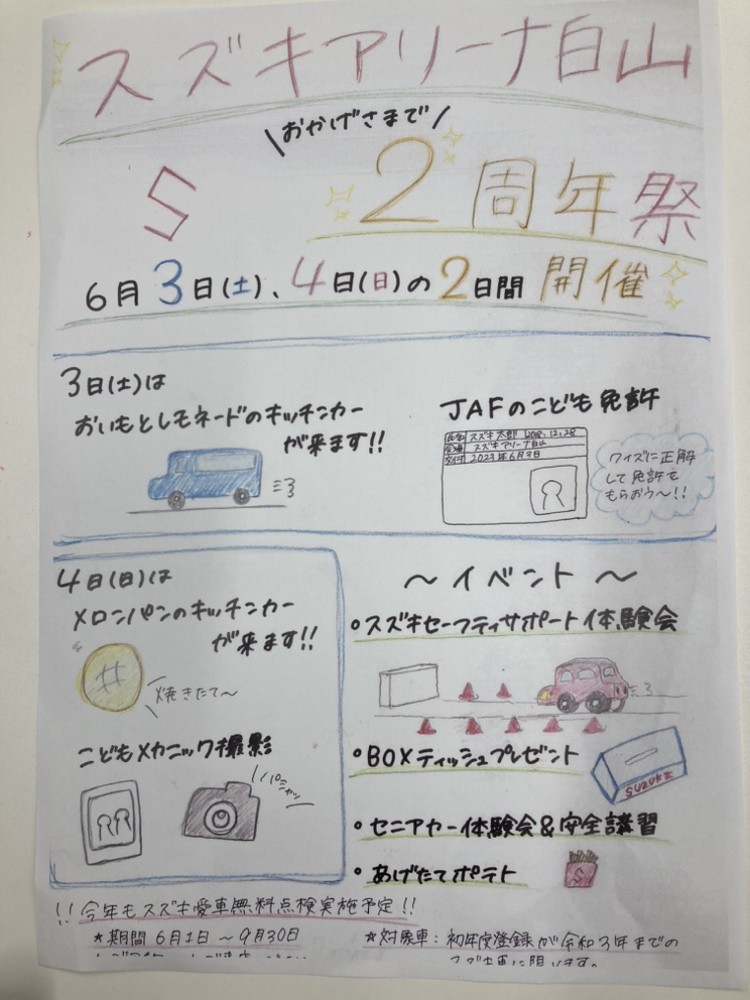 スズキアリーナ白山
\おかげさまで/
S
2周年祭
6月3日(土)、4日(日)の2日間 開催
3日(土)は
おいもとレモネードのキッチンカー
が来ます!!
JAFのこども免許
スズキ太郎
スズキアリーナ白山
2023年6月3日
クイズに正解
して免許を
もらおう〜!!
4日(日)は
メロンパンのキッチンカー
が来ます!!
焼きたて〜
こどもメカニック撮影
パシャッ
〜イベント〜
•スズキセーフティサポート体験会
•BOXティッシュプレゼント
SUZUKI
•セニアカー体験会&安全講習
•あげたてポテト
S
!!今年もスズキ愛車無料点検実施予定!!
*期間 6月1日〜9月30日
*対象車:初年度登録が令和3年までの